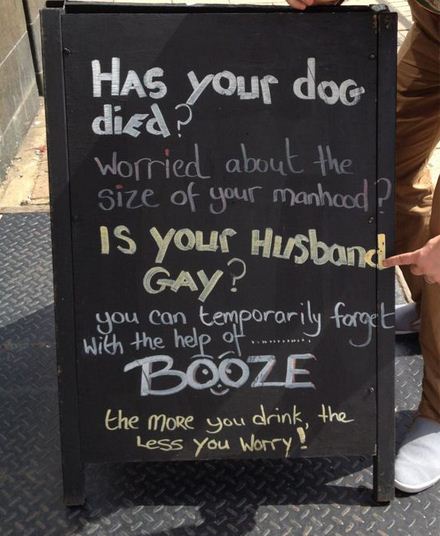 HAS your dog
died?
worried about the
size of your manhood?
IS YOUR HUSBAND
GAY?
you can temporarily forget
with the help of ............
BOOZE
the more you drink, the
Less you worry!